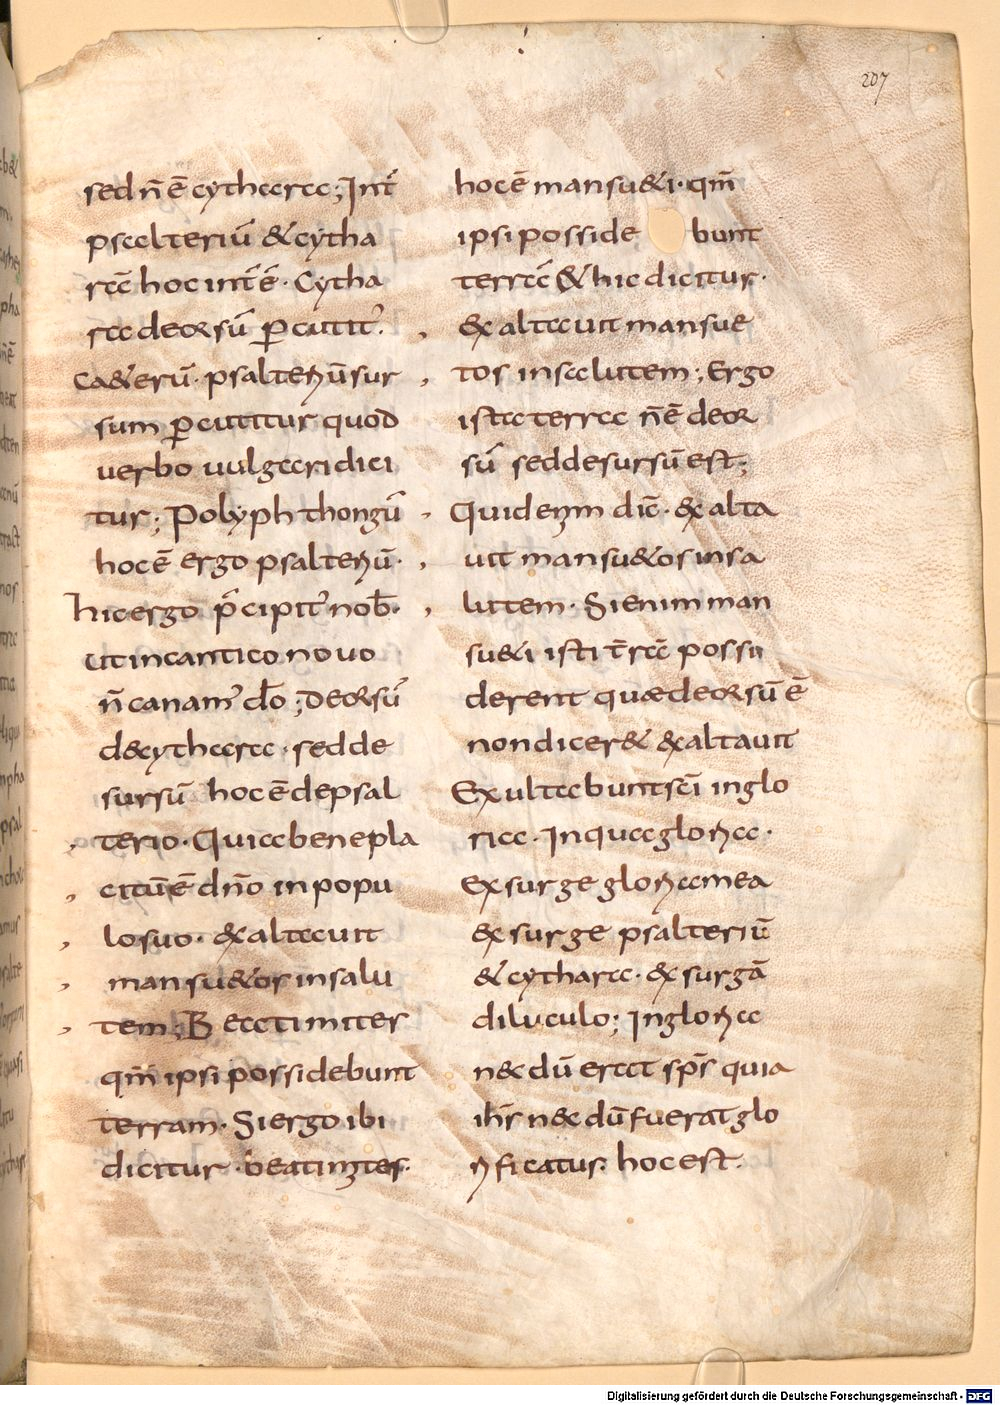 207
sed ñ ē cythara; Int̄
psalteriū & cytha
rā hoc int̄ē· Cytha
ra deorsū ꝑcutit᷑·
Ca&erū· psalteriū sur
sum ꝑcutitur quod
uerbo uulgari dici
tur; Polyphthongū
hoc ē ergo psalteriū·
hic ergo p̄cipit᷑ nob̄·
ut in cantico nouo
ñ canam᷑ dō; Deorsū
de cythara· sed de
sursū hoc ē de psal
terio· Quia bene pla
citū ē dño in popu
lo suo· & exaltauit
mansu&os in salu
tem; Beati mites
qm̄ ipsi possidebunt
terram· Si ergo ibi
dicitur· beati mites·
hoc ē mansu&i· qm̄
ipsi posside bunt
terrā & hic dicitur·
& exaltauit mansue
tos in salutem; Ergo
ista terra ñ ē deor
sū sed desursū est;
Quid enim dic̄· & exalta
uit mansu&os in sa
lutem· Si enim man
su&i isti t̄rā possi
derent quæ deorsū ē
non dicer& exaltauit
Exultabunt scī in glo
ria· In qua gloria·
Exsurge gloria mea
exsurge psalteriū
& cythara· exsurgā
diluculo; In gloria
necdū erat sp̄s quia
ih̄s necdū fuerat glo
rificatus· hoc est·
Digitalisierung gefördert durch die Deutsche Forschungsgemeinschaft - DFG